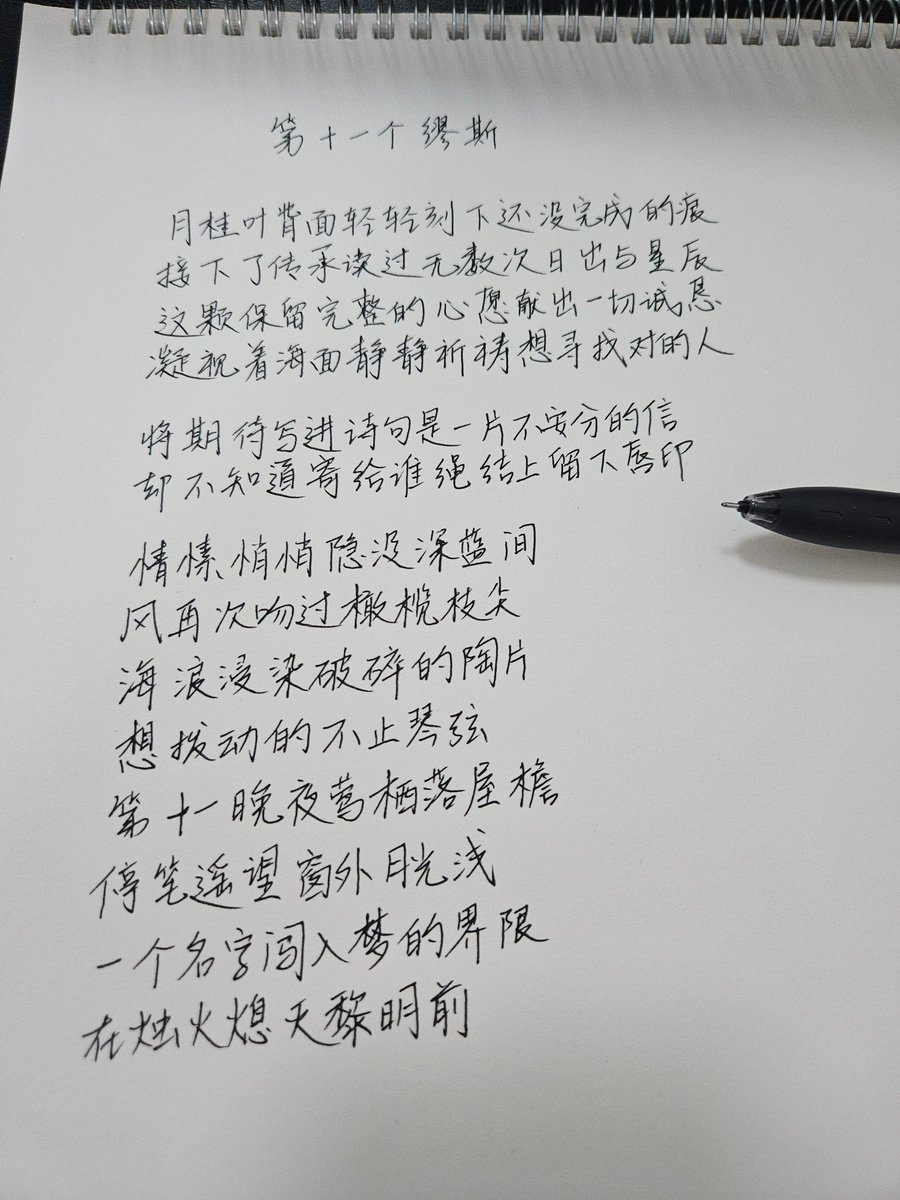 第十一个缪斯
月桂叶背面轻轻刻下还没完成的痕
接下了传承读过无数次日出与星辰
这颗保留完整的心愿献出一切诚恳
凝视着海面静静祈祷想寻找对的人
将期待写进诗句是一片不安分的信
却不知道寄给谁绳结上留下唇印
情愫、悄悄隐没深蓝间
风再次吻过橄榄枝尖
海浪浸染破碎的陶片
想拨动的不止琴弦
第十一晚夜莺栖落屋檐
停笔遥望窗外月光浅
一个名字闯入梦的界限
在烛火熄灭黎明前